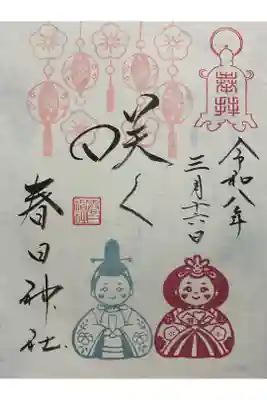 奉拝
令和八年
三月十六日
咲く
春日神社